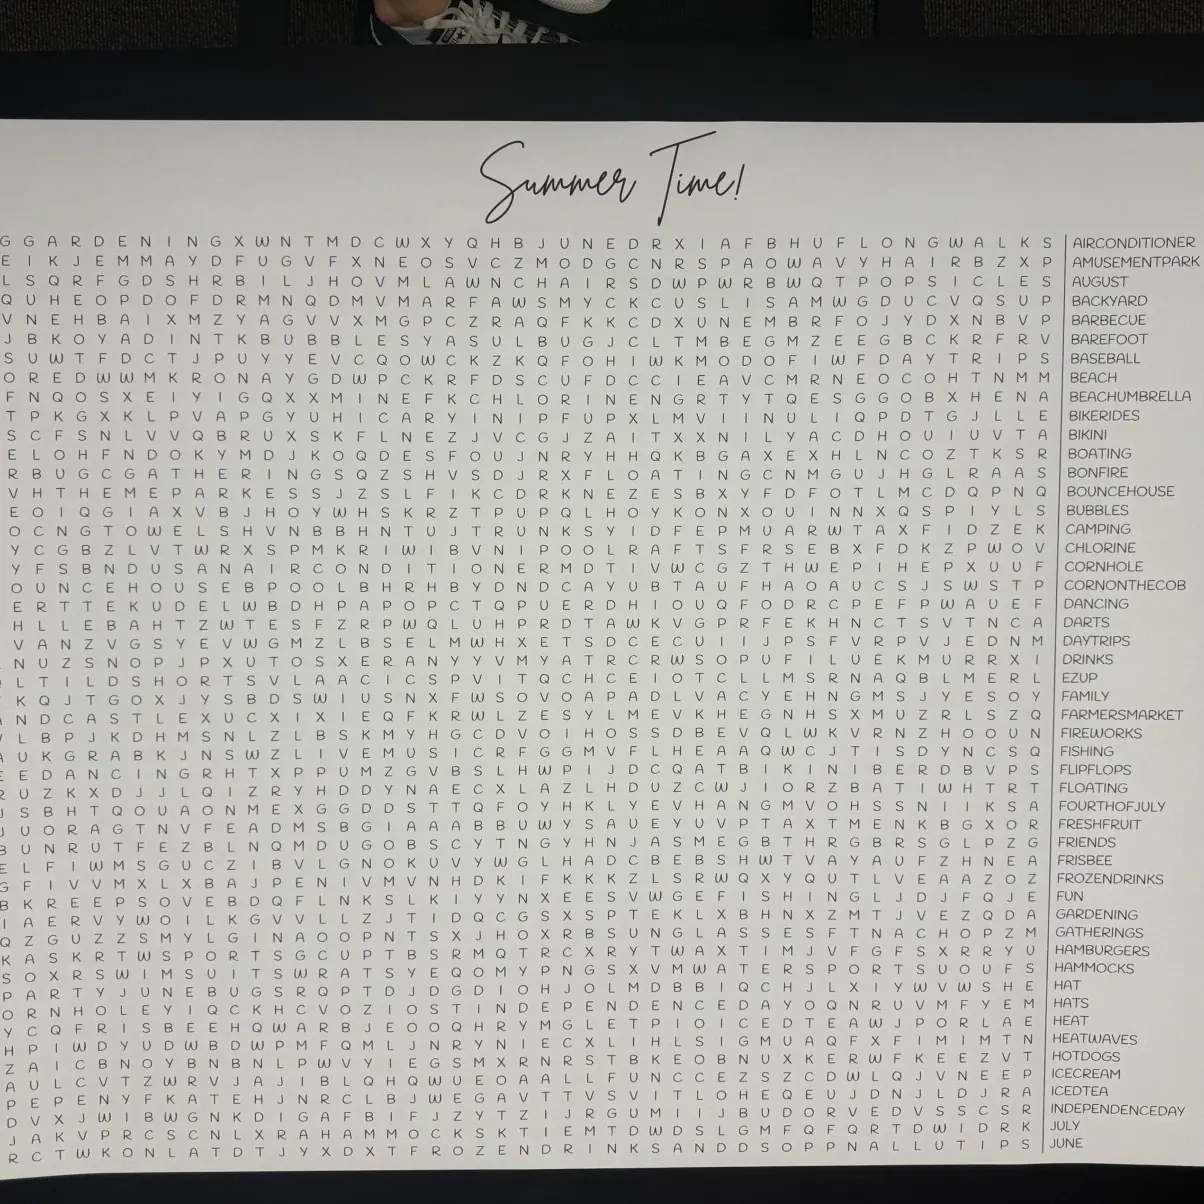 Summer Time!
G G A R D E N I N G X W N T M D C W X Y Q H B J U N E D R X I A F B H U F L O N G W A L K S
E I K J E M M A Y D F U G V F X N E O S V C Z M O D G C N R S P A O W A V Y H A I R B Z X P
L S Q R F G D S H R B I L J H O V M L A W N C H A I R S D W P W R B W Q T P O P S I C L E S
Q U H E O P D O F D R M N Q D M V M A R F A W S M Y C K C U S L I S A M W G D U C V Q S U P
V N E H B A I X M Z Y A G V V X M G P C Z R A Q F K K C D X U N E M B R F O J Y D X N B V P
J B K O Y A D I N T K B U B B L E S Y A S U L B U G J C L T M B E G M Z E E G B C K R F R V
S U W T F D C T J P U Y Y E V C Q O W C K Z K Q F O H I W K M O D O F I W F D A Y T R I P S
O R E D W W M K R O N A Y G D W P C K R F D S C U F D C C I E A V C M R N E O C O H T N M M
F N Q O S X E I Y I G Q X X M I N E F K C H L O R I N E N G R T Y T Q E S G G O B X H E N A
T P K G X K L P V A P G Y U H I C A R Y I N I P F U P X L M V I I N U L I Q P D T G J L L E
S C F S N L V V Q B R U X S K F L N E Z J V C G J Z A I T X X N I L Y A C D H O U I U V T A
E L O H F N D O K Y M D J K O Q D E S F O U J N R Y H H Q K B G A X E X H L N C O Z T K S R
R B U G C G A T H E R I N G S Q Z S H V S D J R X F L O A T I N G C N M G U J H G L R A A S
V H T H E M E P A R K E S S J Z S L F I K C D R K N E Z E S B X Y F D F O T L M C D Q P N Q
E O I Q G I A X V B J H O Y W H S K R Z T P U P Q L H O Y K O N X O U I N N X Q S P I Y L S
O C N G T O W E L S H V N B B H N T U J T R U N K S Y I D F E P M U A R W T A X F I D Z E K
Y C G B Z L V T W R X S P M K R I W I B V N I P O O L R A F T S F R S E B X F D K Z P W O V
Y F S B N D U S A N A I R C O N D I T I O N E R M D T I V W C G Z T H W E P I H E P X U U F
O U N C E H O U S E B P O O L B H R H B Y D N D C A Y U B T A U F H A O A U C S J S W S T P
E R T T E K U D E L W B D H P A P O P C T Q P U E R D H I O U Q F O D R C P E F P W A U E F
H L L E B A H T Z W T E S F Z R P W Q L U H P R D T A W K V G P R F E K H N C T S V T N C A
V A N Z V G S Y E V W G M Z L B S E L M W H X E T S D C E C U I I J P S F V R P V J E D N M
N U Z S N O P J P X U T O S X E R A N Y Y V M Y A T R C R W S O P U F I L U E K M U R R X I
L T I L D S H O R T S V L A A C I C S P V I T Q C H C E I O T C L L M S R N A Q B L M E R L
K Q J T G O X J Y S B D S W I U S N X F W S O V O A P A D L V A C Y E H N G M S J Y E S O Y
N D C A S T L E X U C X I X I E Q F K R W L Z E S Y L M E V K H E G N H S X M U Z R L S Z Q
L B P J K D H M S N L Z L B S K M Y H G C D V O I H O S S D B E V Q L W K V R N Z H O O U N
U K G R A B K J N S W Z L I V E M U S I C R F G G M V F L H E A A Q W C J T I S D Y N C S Q
E E D A N C I N G R H T X P P U M Z G V B S L H W P I J D C Q A T B I K I N I B E R D B V P S
R U Z K X D J J L Q I Z R Y H D D Y N A E C X L A Z L H D U Z C W J I O R Z B A T I W H T R T
J S B H T Q O U A O N M E X G G D D S T T Q F O Y H K L Y E V H A N G M V O H S S N I I K S A
J U O R A G T N V F E A D M S B G I A A A B B U W Y S A U E Y U V P T A X T M E N K B G X O R
B U N R U T F E Z B L N Q M D U G O B S C Y T N G Y H N J A S M E G B T H R G B R S G L P Z G
E L F I W M S G U C Z I B V L G N O K U V Y W G L H A D C B E B S H W T V A Y A U F Z H N E A
G F I V V M X L X B A J P E N I V M V N H D K I F K K K Z L S R W Q X Y Q U T L V E A A Z O Z
B K R E E P S O V E B D Q F L N K S L K I Y Y N X E E S V W G E F I S H I N G L J D J F Q J E
I A E R V Y W O I L K G V V L L Z J T I D Q C G S X S P T E K L X B H N X Z M T J V E Z Q D A
Q Z G U Z Z S M Y L G I N A O O P N T S X J H O X R B S U N G L A S S E S F T N A C H O P Z M
K A S K R T W S P O R T S G C U P T B S R M Q T R C X R Y T W A X T I M J V F G F S X R R Y U
S O X R S W I M S U I T S W R A T S Y E Q O M Y P N G S X V M W A T E R S P O R T S U O U F S
P A R T Y J U N E B U G S R Q P T D J D G D I O H J O L M D B B I Q C H J L X I Y W V W S H E
O R N H O L E Y I Q C K H C V O Z I O S T I N D E P E N D E N C E D A Y O Q N R U V M F Y E M
Y C Q F R I S B E E H Q W A R B J E O O Q H R Y M G L E T P I O I C E D T E A W J P O R L A E
H P I W D Y U D W B D W P M F Q M L J N R Y N I E C X L I H L S I G M U A Q F X F I M I M T N
Z A I C B N O Y B N B N L P W V Y I E G S M X R N R S T B K E O B N U X K E R W F K E E Z V T
A U L C V T Z W R V J A J I B L Q H Q W U E O A A L L F U N C C E Z S Z C D W L Q J V N E E P
P E P E N Y F K A T E H J N R C L B J W E G A V T T V S V I T L O H E Q E U J D N J L D J R A
D V X J W I B W G N K D I G A F B I F J Z Y T Z I J R G U M I I J B U D O R V E D V S S C S R
J A K V P R C S C N L X R A H A M M O C K S K T I E M T D W D S L G M F Q F Q R T D W I D R K
R C T W K O N L A T D T J Y X D X T F R O Z E N D R I N K S A N D D S O P P N A L L U T I P S
AIRCONDITIONER
AMUSEMENTPARK
AUGUST
BACKYARD
BARBECUE
BAREFOOT
BASEBALL
BEACH
BEACHUMBRELLA
BIKERIDES
BIKINI
BOATING
BONFIRE
BOUNCEHOUSE
BUBBLES
CAMPING
CHLORINE
CORNHOLE
CORNONTHECOB
DANCING
DARTS
DAYTRIPS
DRINKS
EZUP
FAMILY
FARMERSMARKET
FIREWORKS
FISHING
FLIPFLOPS
FLOATING
FOURTHOFJULY
FRESHFRUIT
FRIENDS
FRISBEE
FROZENDRINKS
FUN
GARDENING
GATHERINGS
HAMBURGERS
HAMMOCKS
HAT
HATS
HEAT
HEATWAVES
HOTDOGS
ICECREAM
ICEDTEA
INDEPENDENCEDAY
JULY
JUNE